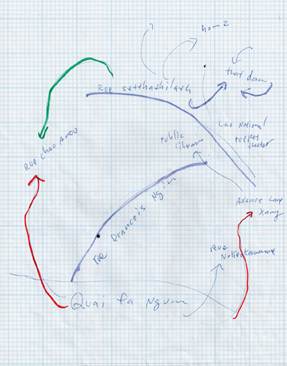 home
that dam
Rue setthathilath
Lao National
Public
Library
Rue Chao Anou
Avenue Lane
Xang
Rue Francois Ngin
rue
Nokeokoummane
Quai Fa Ngum